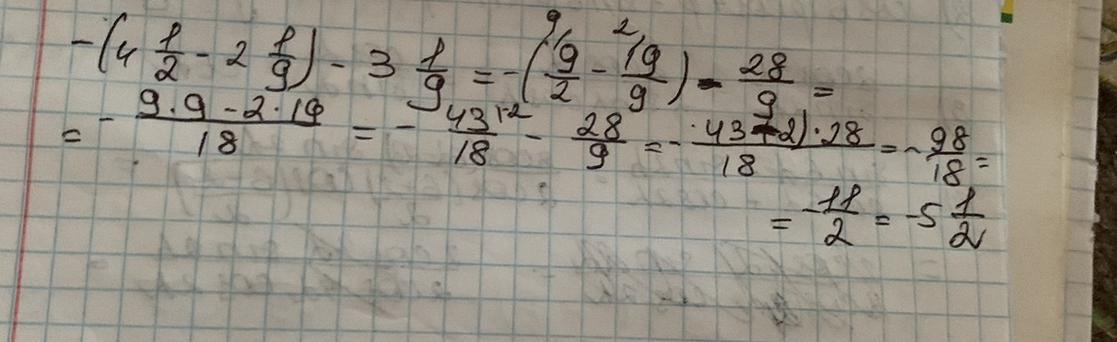 -(4 1/2 - 2 1/9) - 3 1/9 = -(9/2 - 19/9) - 28/9 =
= - 9·9 - 2·19/18 = - 43/18 - 28/9 = - 43+2·28/18 = - 98/18 =
= -11/2 = -5 1/2